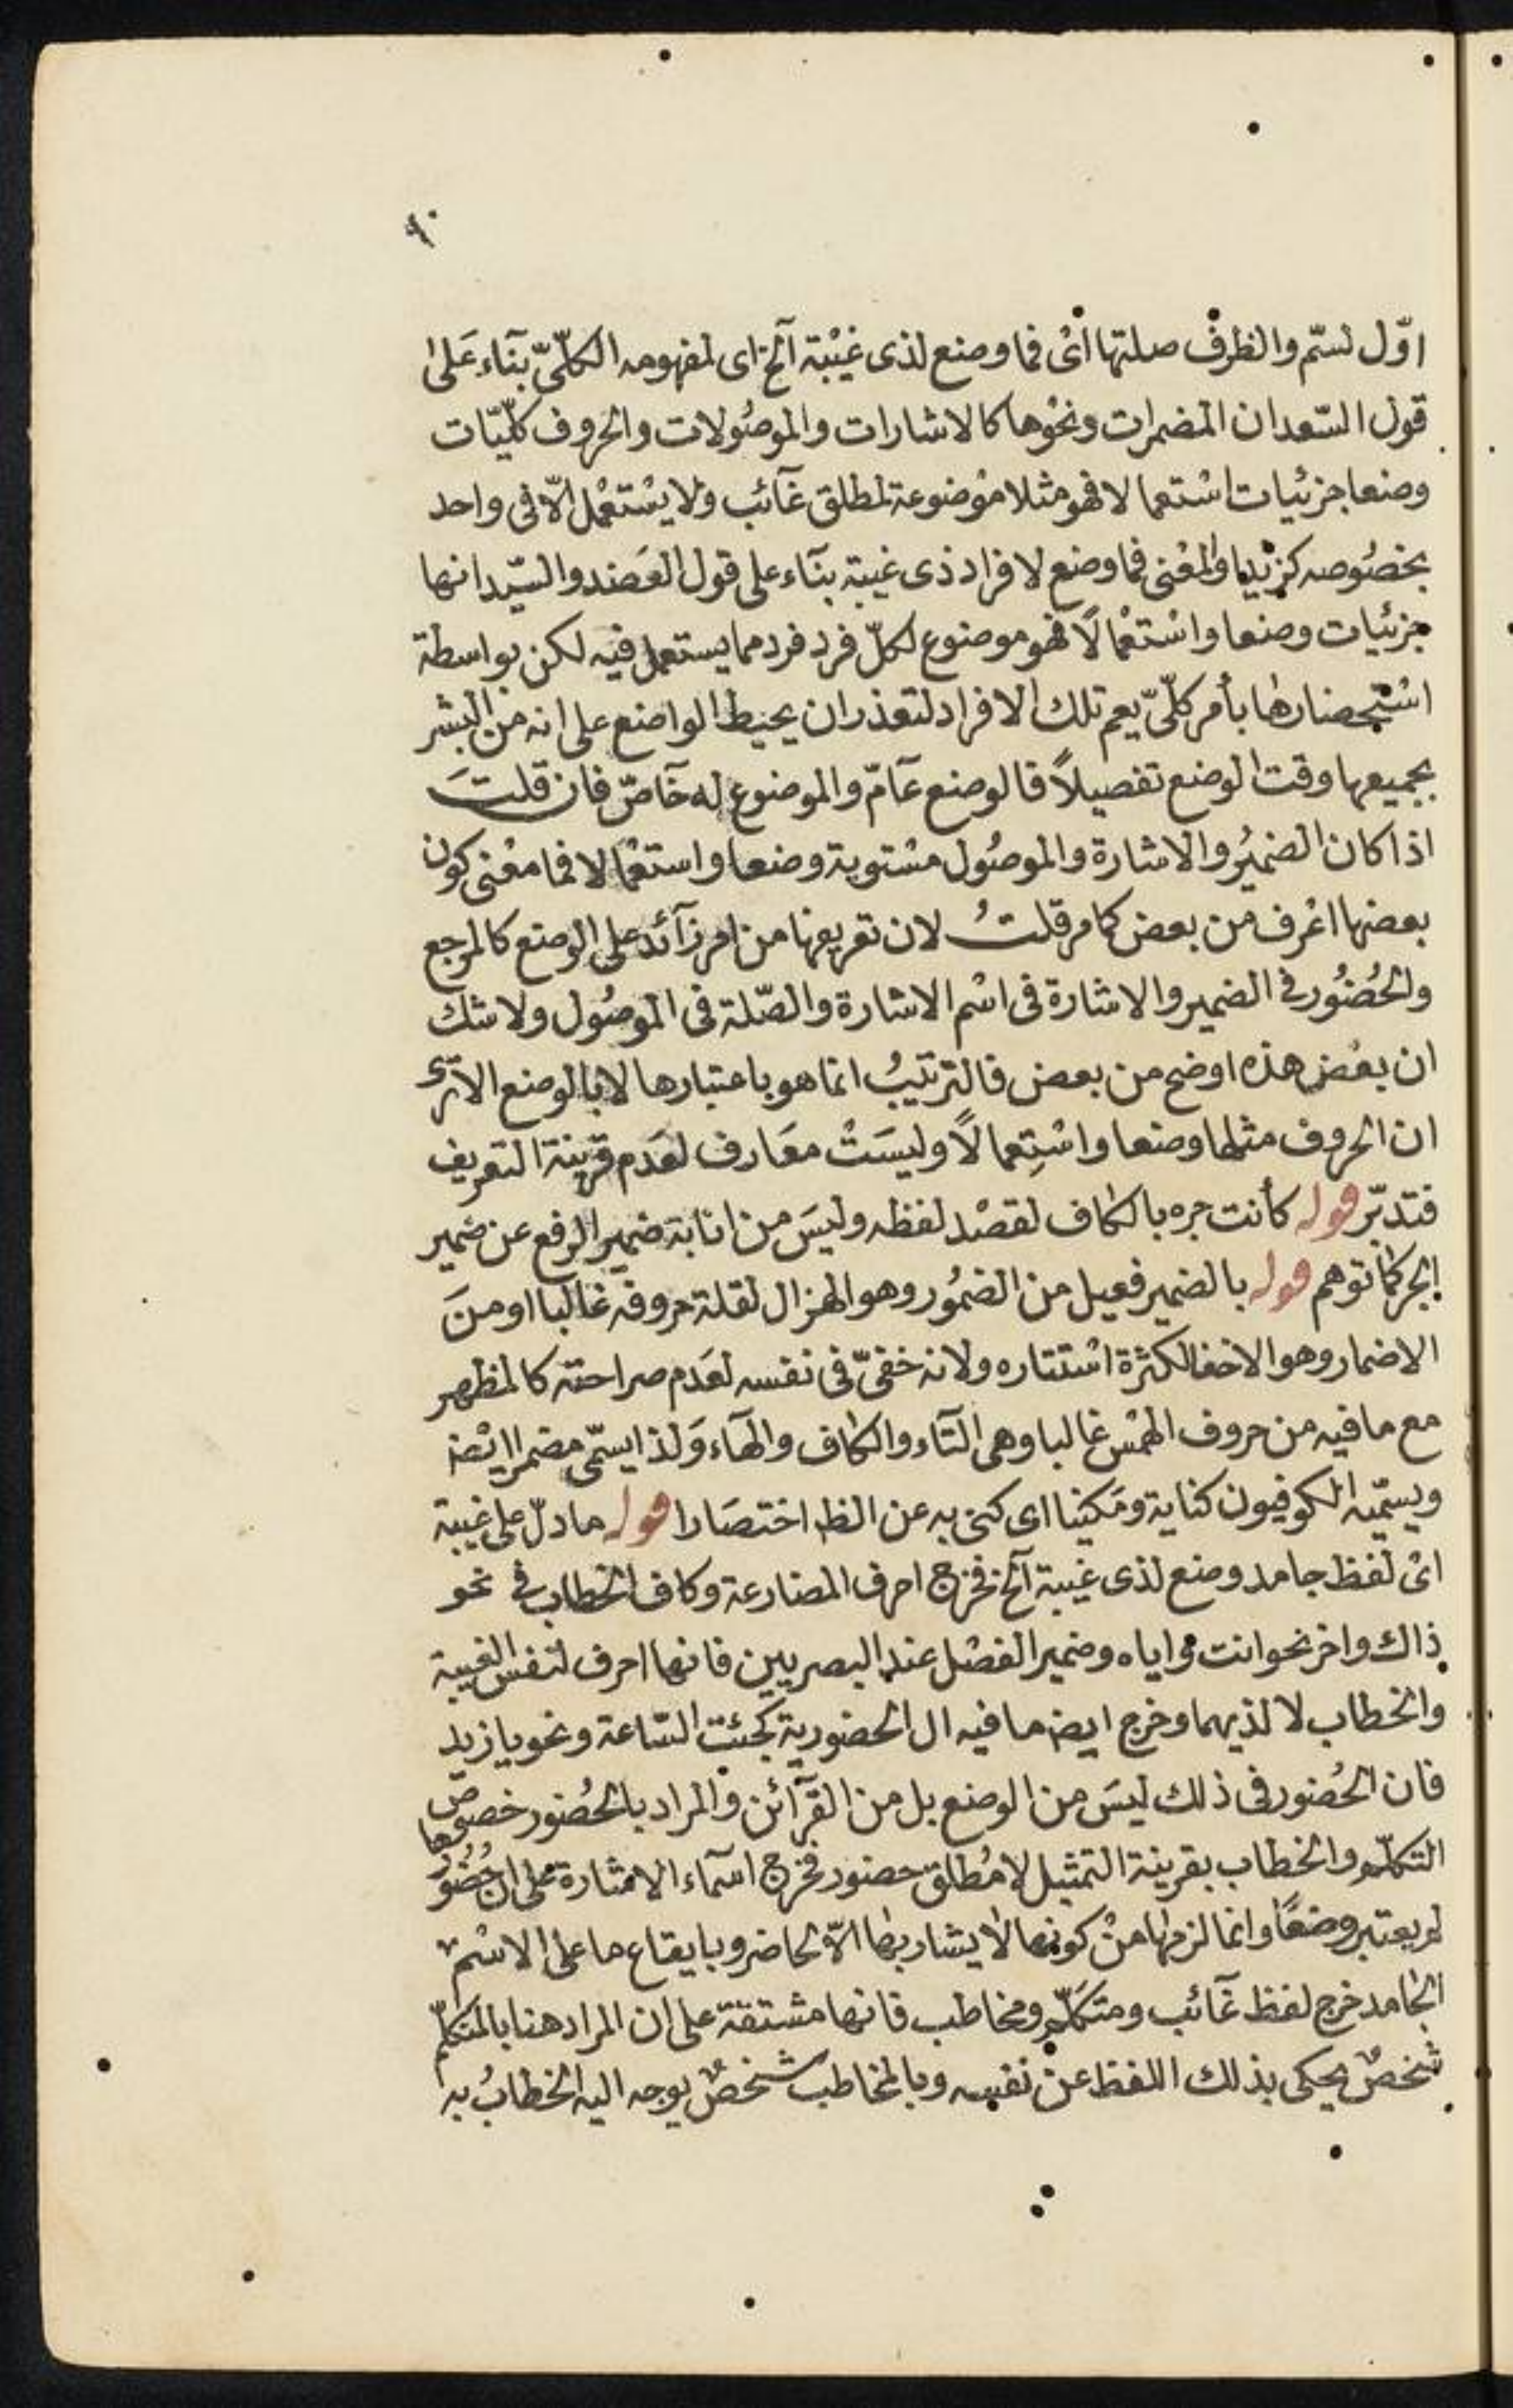 ٩٠
اوّل لسمّ والظرف صلتها اىْ فما وضع لذى غيْبة آلخ اى لمفهومه الكلّىّ بنآء عَلىٰ
قول السّعد ان المضمرات ونحْوها كالاشارات والموصُولات والحروف كلّيّات
وضعا جزئيات اسْتعمالا فهو مثلا موْضوعة لمطلق غآئب ولا يسْتعْمل الّا فى واحد
بخصُوصه كزيد او المعْنى فما وضع لافراد ذى غيبة بنآء على قول العَضد والسيّد انها
جزئيات وضعا واسْتعْمالًا فهو موضوع لكلّ فرد فرد مما يستعمل فيه لكن بواسطة
اسْتحضارها بأمر كلّىّ يعم تلك الافراد لتعذر ان يحيط الواضع على انه من البشر
بجميعها وقت الوضع تفصيلاً فالوضع عآمّ والموضوع له خآصّ فان قلتَ
اذا كان الضميُر والاشارة والموصُول مسْتوية وضعا واستعْمالا فما معْنى كون
بعضها اعْرف من بعض كما مر قلتُ لان تعريفها من امر زآئد على الوضع كالمرجع
والحُضُور فى الضمير والاشارة فى اسْم الاشارة والصّلة فى الموصُول ولا شك
ان بعْض هذه اوضح من بعض فالترتيبُ انما هو باعتبارها لا بالوضع الا ترى
ان الحروف مثلها وضعا واسْتِعمالًا وليسَتْ معَارف لعَدم قرينة التعريف
فتدبّر قوله كأنت جره بالكاف لقصْد لفظه وليسَ من انابة ضمير الرفع عن ضمير
الجر كما توهم قوله بالضمير فعيل من الضمُور وهو الهزال لقلة حروفه غالبا او منَ
الاضمار وهو الاخفا لكثرة اسْتتاره ولانه خفىّ فى نفسه لعَدم صراحته كالمظهر
مع ما فيه من حروف الهمْس غالبا وهى التآء والكاف والهآء وَلذا يسمّى مضمرا ايْضا
ويسمّيه الكوفيون كناية ومَكنيا اى كنى به عن الظ اختصَارا قوله ما دلّ على غيبة
اىْ لفظ جامد وضع لذى غيبة آلخ فخرج احرف المضارعة وكاف الخطاب فى نحو
ذاك واخر نحو انت واياه وضمير الفصْل عند البصريين فانها احرف لنفس الغيبة
والخطاب لا لذيهما وخرج ايضا ما فيه ال الحضورية كجئت السّاعة ونحو يا زيد
فان الحُضور فى ذلك ليسَ من الوضع بل من القرآئن والمراد بالحُضور خصوصّ
التكلّم والخطاب بقرينة التمثيل لا مُطلق حضور فخرج اسمآء الاشارة على ان حُضُورها
لم يعتبر وضعًا وانما لزمها منْ كونها لا يشار بها الّا لحاضر وبايقاع ما على الاسْم
الجامد خرج لفظ غآئب ومتكَلّم ومخاطب فانها مشتقة على ان المراد هنا بالمتكلّم
شخصٌ يحكى بذلك اللفظ عن نفسه وبالمخاطب شخصٌ يوجه اليه الخطابُ به